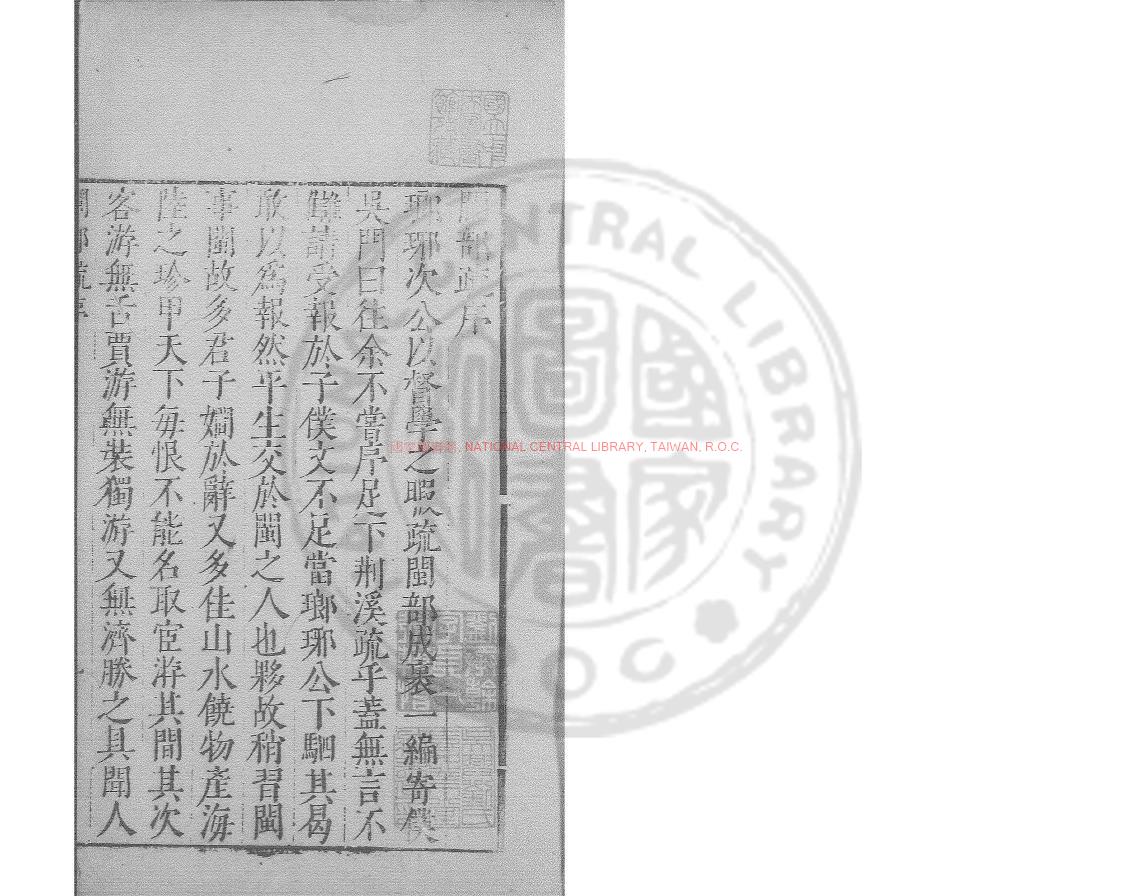 閩部疏序
瑯琊次公以督學之暇疏閩部成裹一編寄僕
吳門曰往余不嘗序足下荆溪疏乎蓋無言不
讎請受報於子僕文不足當瑯琊公下駟其曷
敢以爲報然平生交於閩之人也夥故稍習閩
事閩故多君子嫺於辭又多佳山水饒物產海
陸之珍甲天下毎恨不能名取宦游其間其次
客游無舌賈游無裝獨游又無濟勝之具聞人
閩部疏序
一
NATIONAL CENTRAL LIBRARY, TAIWAN, R.O.C.
國家圖書館
CENTRAL LIBRARY